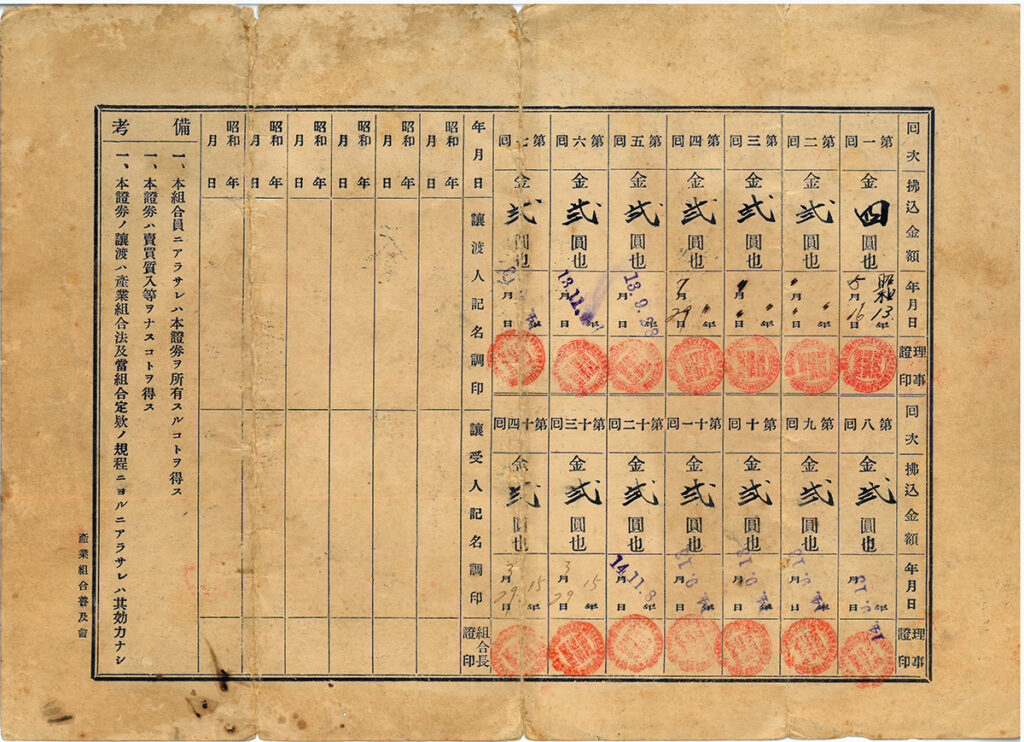 回次
拂込金額
年月日
理事證印
第一回
金四圓也
昭和13年
5月16日
第二回
金弐圓也
〃年
〃月〃日
第三回
金弐圓也
〃年
〃月〃日
第四回
金弐圓也
〃年
7月29日
第五回
金弐圓也
年月日
13.9.28
第六回
金弐圓也
年月日
13.11.
第七回
金弐圓也
年月日
回次
拂込金額
年月日
理事證印
第八回
金弐圓也
年月日
第九回
金弐圓也
年月日
第十回
金弐圓也
年月日
第十一回
金弐圓也
年月日
第十二回
金弐圓也
年月日
14.11.8
第十三回
金弐圓也
15年
3月29日
第十四回
金弐圓也
15年
3月29日
年月日
讓渡人記名調印
讓受人記名調印
組合長證印
昭和年
月日
昭和年
月日
昭和年
月日
昭和年
月日
昭和年
月日
昭和年
月日
備考
一、本組合員ニアラサレハ本證券ヲ所有スルコトヲ得ス
一、本證券ハ賣買質入等ヲナスコトヲ得ス
一、本證券ノ讓渡ハ產業組合法及當組合定欵ノ規程ニヨルニアラサレハ其効力ナシ
產業組合普及會